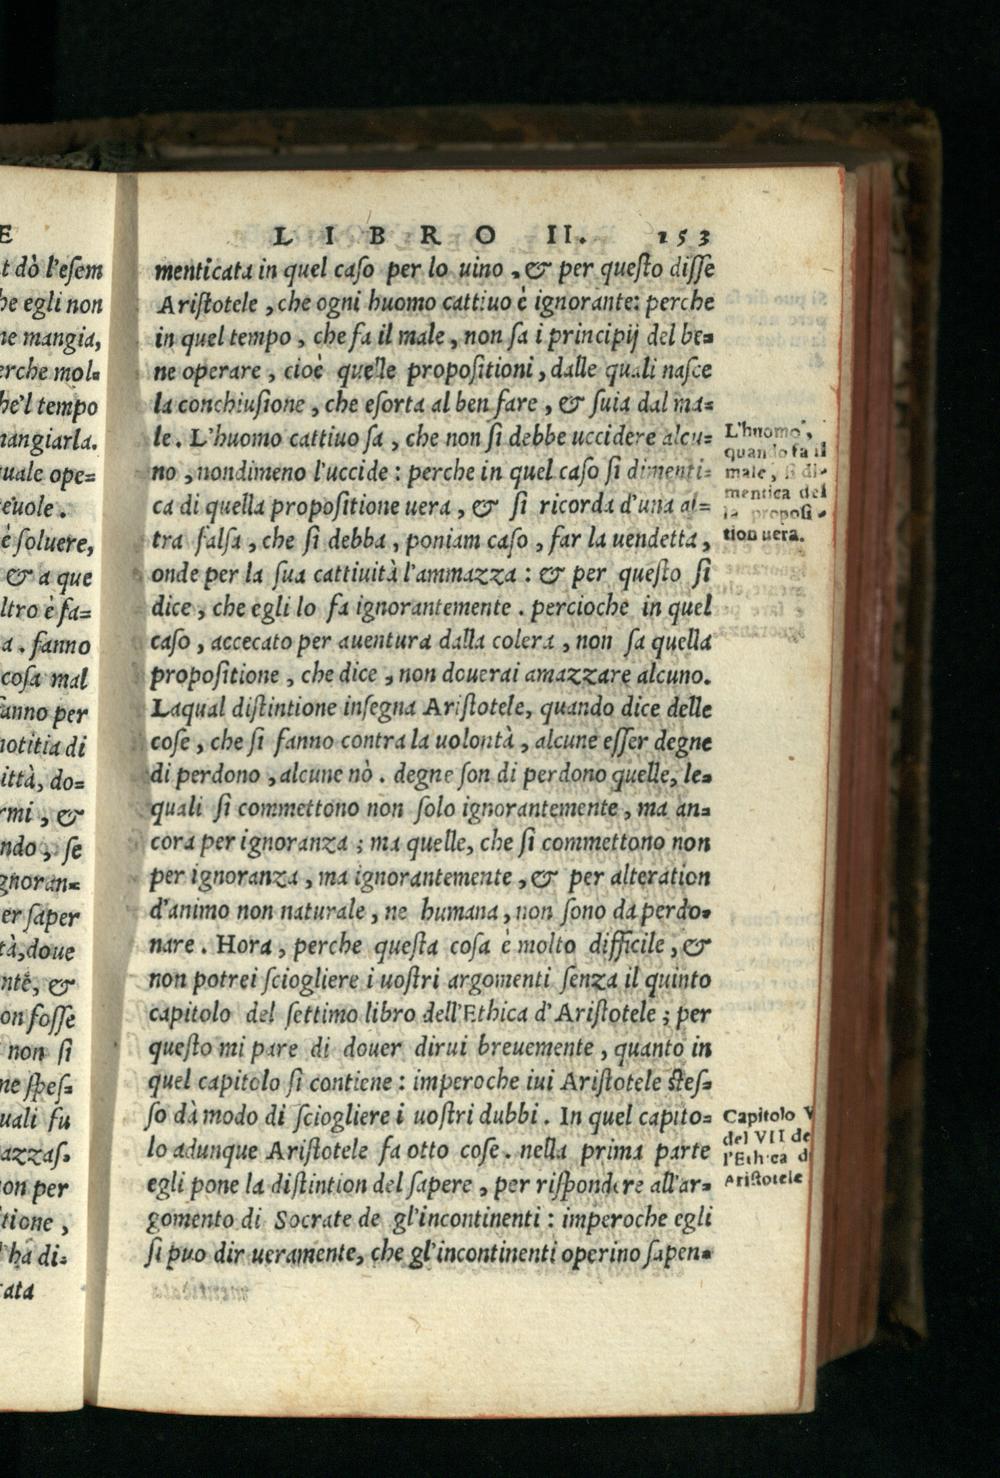 E
t dò l'eſem
he egli non
ne mangia,
erche mol-
he'l tempo
mangiarla.
uale ope-
euole.
è ſoluere,
& a que
ltro è fa-
a. fanno
coſa mal
fanno per
notitia di
ittà, do-
rmi, &
ndo, ſe
gnoran-
er ſaper
tà, doue
nte, &
on foſſe
non ſi
ne ſpeſ-
uali fu
azzaſ-
on per
tione,
ha di-
cata
LIBRO II. 153
menticata in quel caſo per lo uino, & per queſto diſſe
Ariſtotele, che ogni huomo cattiuo è ignorante: perche
in quel tempo, che fa il male, non ſa i principij del be-
ne operare, cioè quelle propoſitioni, dalle quali naſce
la conchiuſione, che eſorta al ben fare, & ſuia dal ma-
le. L'huomo cattiuo ſa, che non ſi debbe uccidere alcu-
no, nondimeno l'uccide: perche in quel caſo ſi dimenti-
ca di quella propoſitione uera, & ſi ricorda d'una al-
tra falſa, che ſi debba, poniam caſo, far la uendetta,
onde per la ſua cattiuità l'ammazza: & per queſto ſi
dice, che egli lo fa ignorantemente. percioche in quel
caſo, accecato per auentura dalla colera, non ſa quella
propoſitione, che dice, non douerai amazzare alcuno.
Laqual diſtintione inſegna Ariſtotele, quando dice delle
coſe, che ſi fanno contra la uolontà, alcune eſſer degne
di perdono, alcune nò. degne ſon di perdono quelle, le-
quali ſi commettono non ſolo ignorantemente, ma an-
cora per ignoranza; ma quelle, che ſi commettono non
per ignoranza, ma ignorantemente, & per alteration
d'animo non naturale, ne humana, non ſono da perdo-
nare. Hora, perche queſta coſa è molto difficile, &
non potrei ſciogliere i uoſtri argomenti ſenza il quinto
capitolo del ſettimo libro dell'Ethica d'Ariſtotele; per
queſto mi pare di douer dirui breuemente, quanto in
quel capitolo ſi contiene: imperoche iui Ariſtotele ſteſ-
ſo dà modo di ſciogliere i uoſtri dubbi. In quel capito-
lo adunque Ariſtotele fa otto coſe. nella prima parte
egli pone la diſtintion del ſapere, per riſpondere all'ar-
gomento di Socrate de gl'incontinenti: imperoche egli
ſi puo dir ueramente, che gl'incontinenti operino ſapen-
L'huomo,
quando fa il
male, ſi di-
mentica del
la propoſi-
tion uera.
Capitolo V
del VII de
l'Ethica d
Ariſtotele